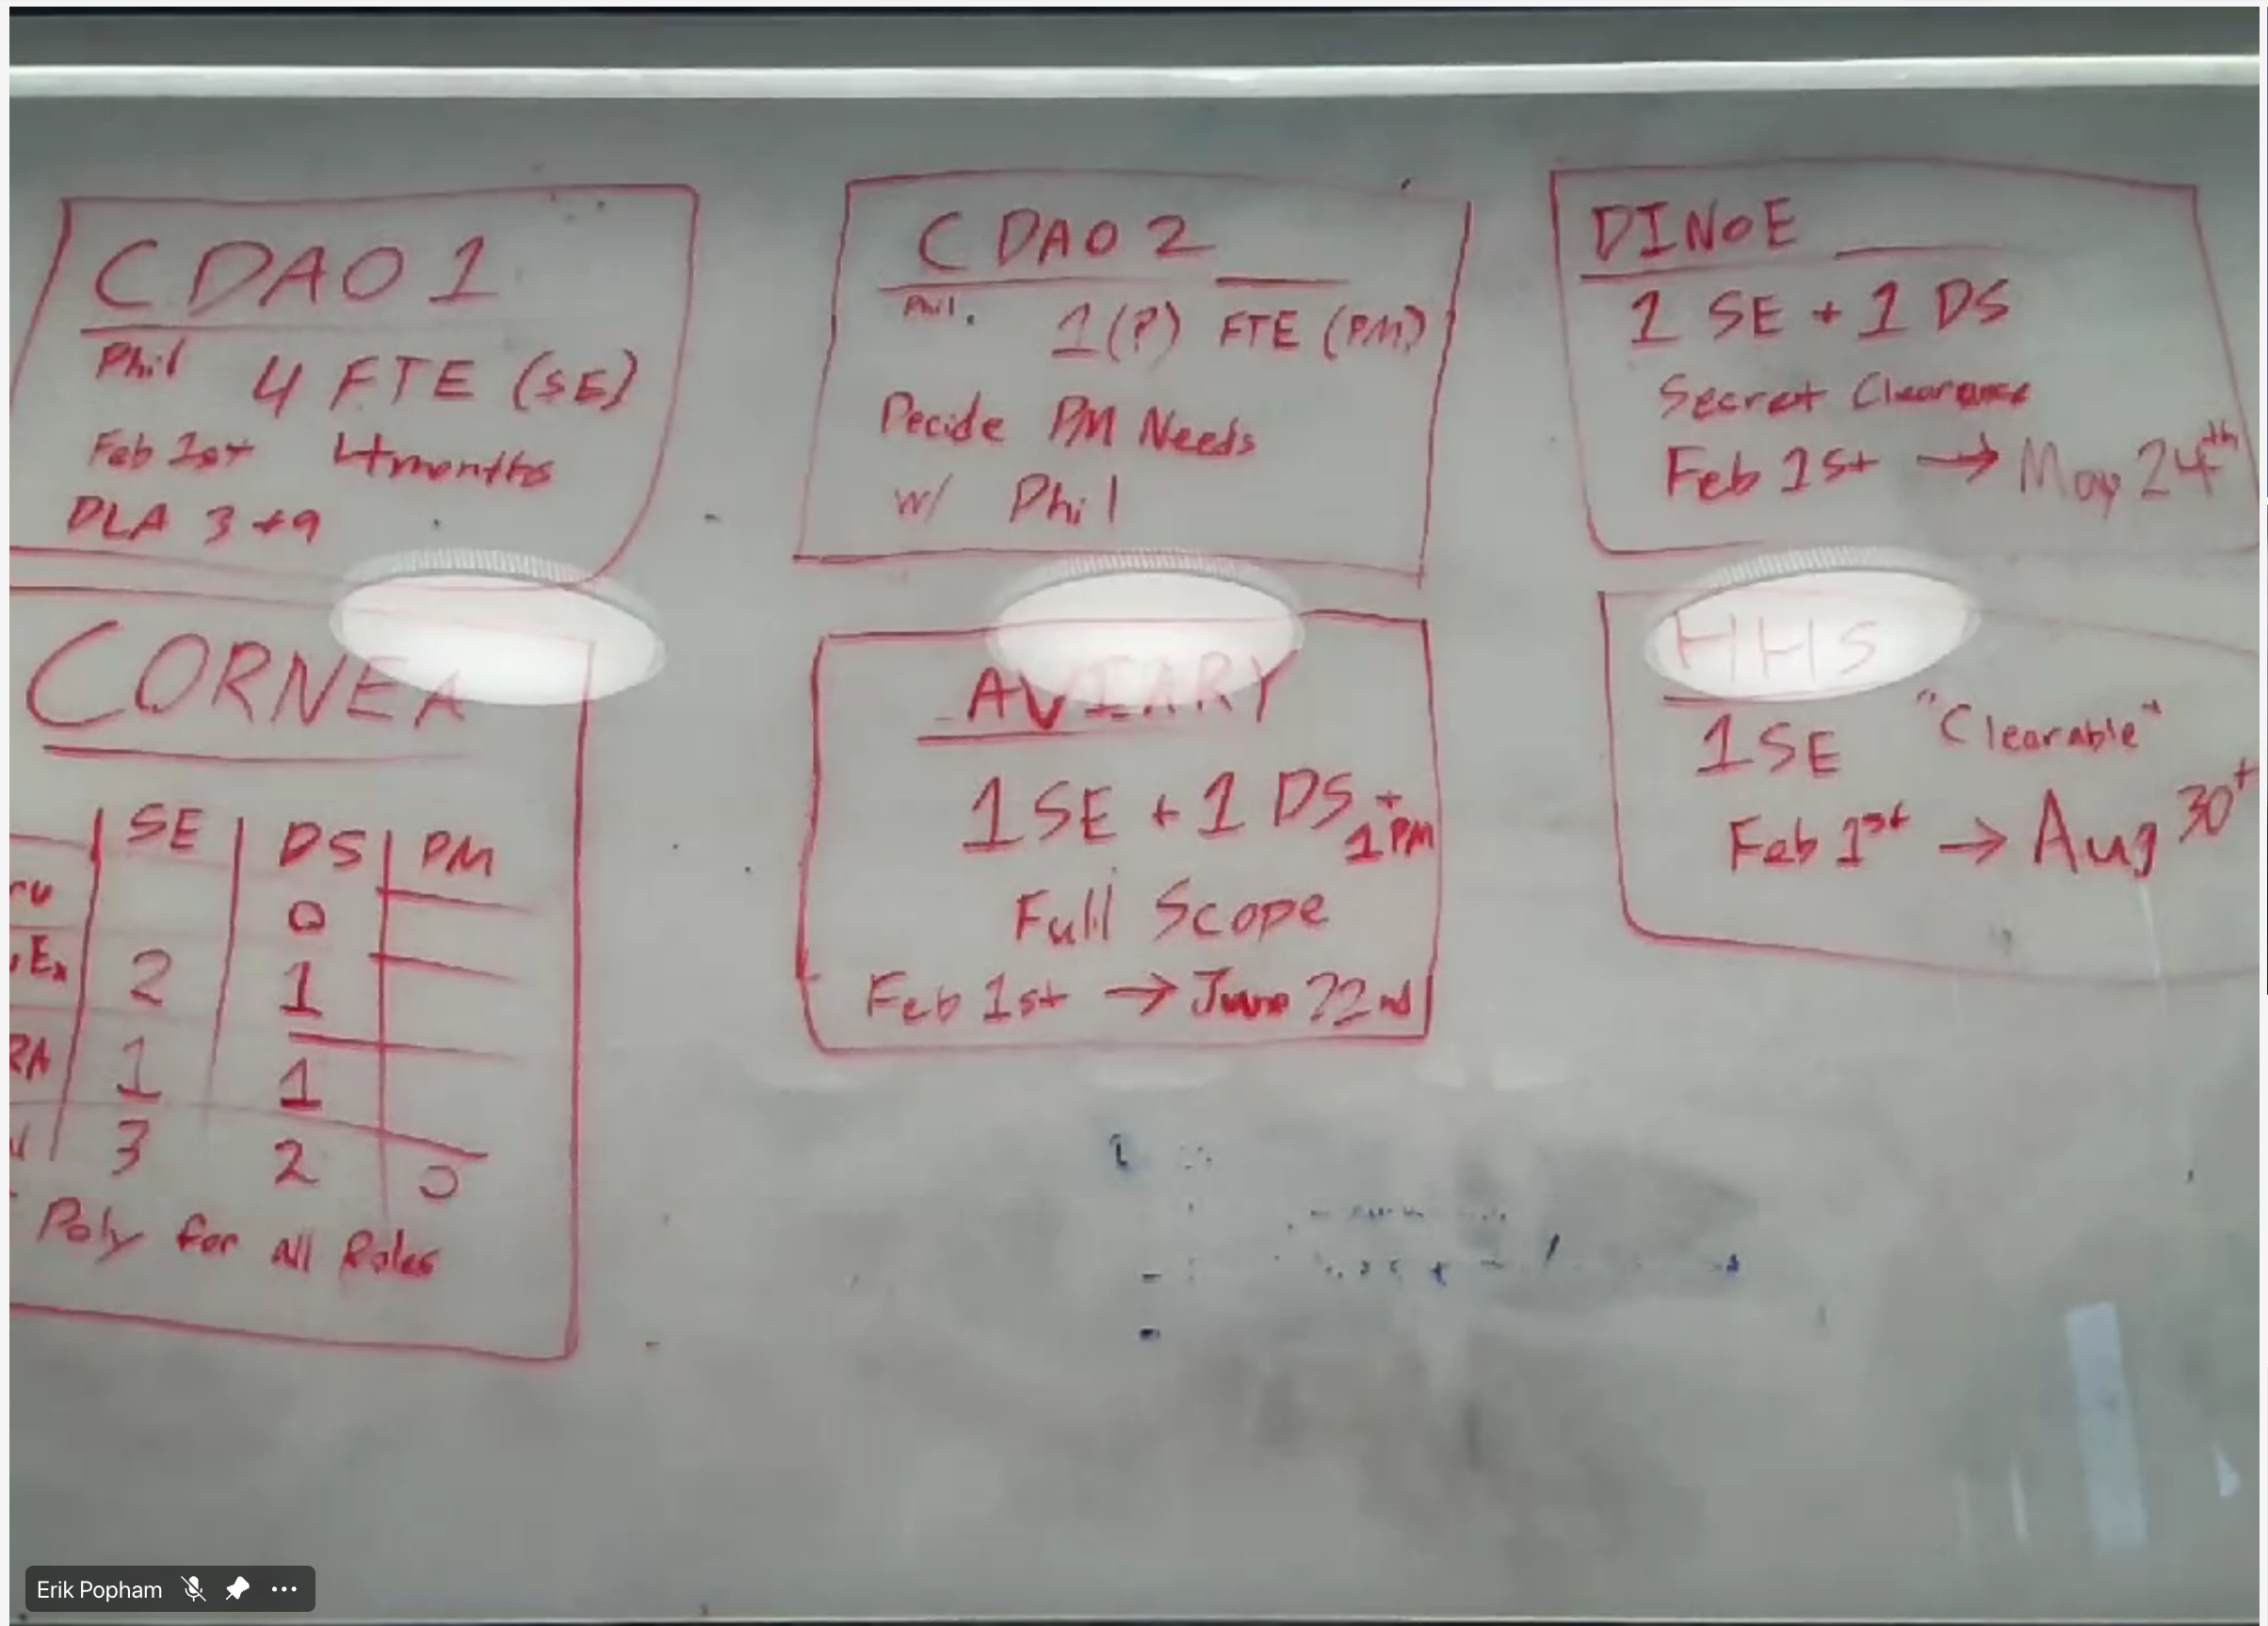 CDAO 1
Phil 4 FTE (SE)
Feb 1st 4 months
DLA 3 + 9
CDAO 2
Phil. 1(?) FTE (PM)
Decide PM Needs
w/ Phil
DINOE
1 SE + 1 DS
Secret Clearance
Feb 1st → May 24th
CORNEA
SE DS PM
0
Ex 2 1
RA 1 1
3 2 0
Poly for all Roles
AVIARY
1 SE + 1 DS +
1 PM
Full Scope
Feb 1st → June 22nd
HHS
1 SE "Clearable"
Feb 1st → Aug 30t
Erik Popham